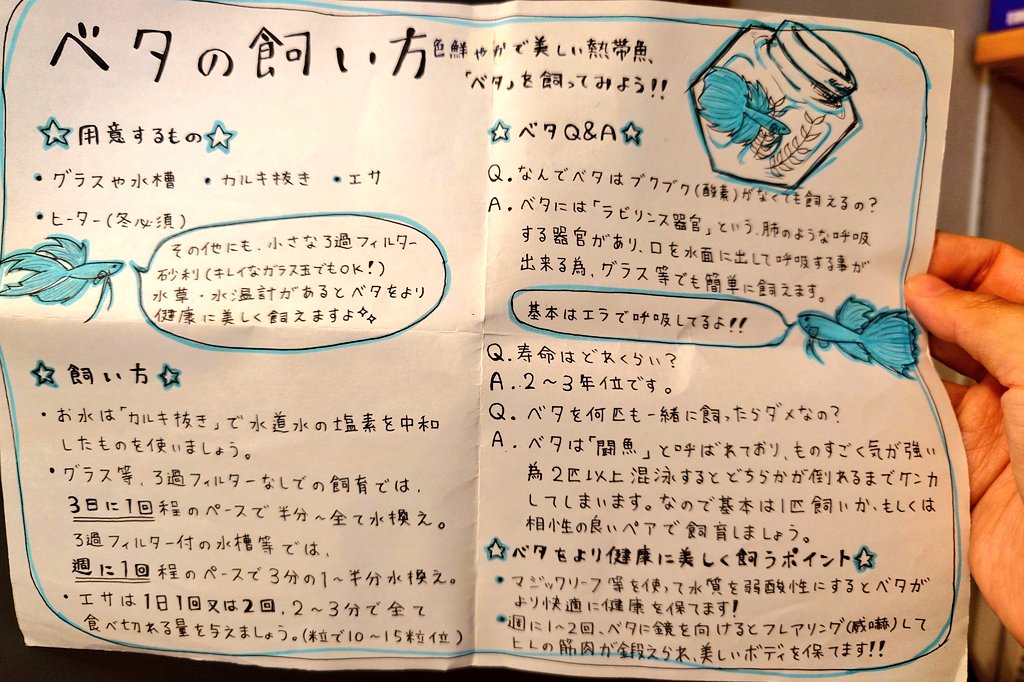 ベタの飼い方
色鮮やかで美しい熱帯魚、
「ベタ」を飼ってみよう!!
☆用意するもの☆
・グラスや水槽 ・カルキ抜き ・エサ
・ヒーター(冬必須)
その他にも、小さなろ過フィルター
砂利(キレイなガラス玉でもOK!)
水草・水温計があるとベタをより
健康に美しく飼えますよ✧✧
☆飼い方☆
・お水は「カルキ抜き」で水道水の塩素を中和
したものを使いましょう。
・グラス等、ろ過フィルターなしでの飼育では、
3日に1回程のペースで半分〜全て水換え。
ろ過フィルター付の水槽等では、
週に1回程のペースで3分の1〜半分水換え。
・エサは1日1回又は2回、2〜3分で全て
食べ切れる量を与えましょう。(粒で10〜15粒位)
☆ベタQ&A☆
Q.なんでベタはブクブク(酸素)がなくても飼えるの?
A.ベタには「ラビリンス器官」という、肺のような呼吸
する器官があり、口を水面に出して呼吸する事が
出来る為、グラス等でも簡単に飼えます。
基本はエラで呼吸してるよ!!
Q.寿命はどれくらい?
A.2〜3年位です。
Q.ベタを何匹も一緒に飼ったらダメなの?
A.ベタは「闘魚」と呼ばれており、ものすごく気が強い
為2匹以上混泳するとどちらかが倒れるまでケンカ
してしまいます。なので基本は1匹飼いか、もしくは
相性の良いペアで飼育しましょう。
☆ベタをより健康に美しく飼うポイント☆
・マジックリーフ等を使って水質を弱酸性にするとベタが
より快適に健康を保てます!
・週に1〜2回、ベタに鏡を向けるとフレアリング(威嚇)して
ヒレの筋肉が鍛えられ、美しいボディを保てます!!